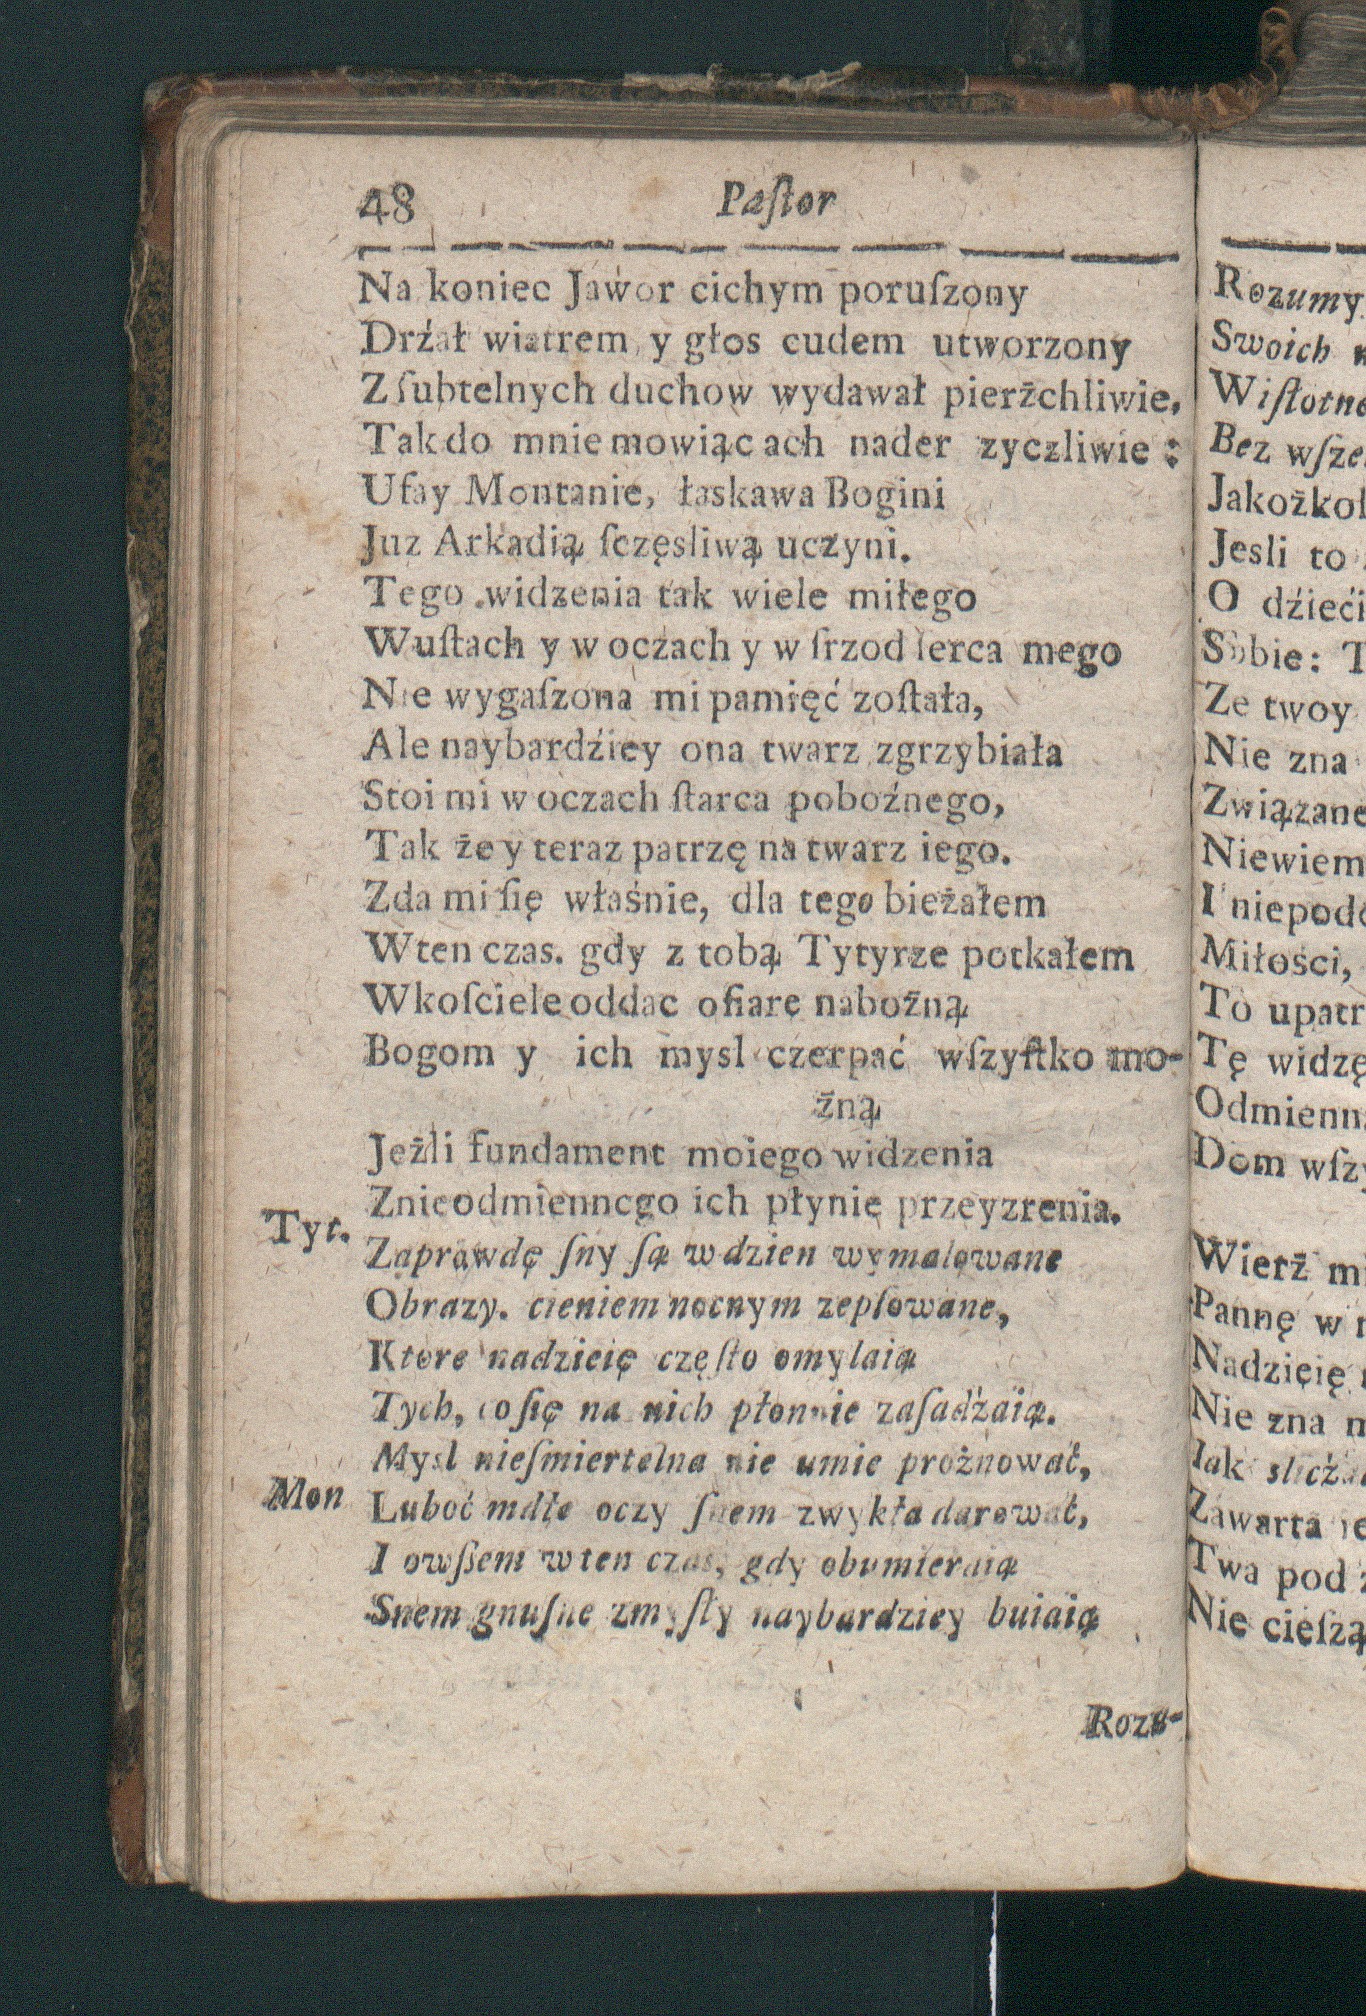 48 Paſtor
Na koniec Jawor cichym poruſzony
Drźał wiatrem y głos cudem utworzony
Z ſubtelnych duchow wydawał pierżchliwie,
Tak do mnie mowiąc ach nader zyczliwie:
Ufay Montanie, łaskawa Bogini
Juz Arkadią ſczęsliwą uczyni.
Tego widzenia tak wiele miłego
Wuſtach y w oczach y w ſrzod ſerca mego
Nie wygaſzona mi pamięć zoſtała,
Ale naybardźiey ona twarz zgrzybiała
Stoi mi w oczach ſtarca poboźnego,
Tak że y teraz patrzę na twarz iego.
Zda mi ſię właśnie, dla tego bieżałem
Wten czas. gdy z tobą Tytyrze potkałem
Wkoſciele oddac ofiarę nabożną
Bogom y ich mysl czerpać wſzyſtko mo-
żną
Jeżli fundament moiego widzenia
Znieodmiennego ich płynie przeyzrenia.
Tyt. Zaprawdę ſny ſą w dzien wymalowane
Obrazy. cieniem nocnym zepſowane,
Ktore nadzieię częſto omylaią
Tych, co ſię na nich płonnie zaſadźaią.
Mysl nieſmiertelna nie umie prożnować,
Mon Luboć mdłe oczy ſnem zwykła darować,
I owſzem w ten czas, gdy obumieraią
Snem gnuſne zmyſły naybardziey buiaią
Rozu-
Rozumy
Swoich
Wiſtotne
Bez wſze
Jakożkol
Jesli to
O dźieći
Sobie: T
Ze twoy
Nie zna
Związane
Niewiem
I niepodo
Miłości,
To upatr
Tę widzę
Odmienn
Dom wſzy
Wierż mi
Pannę w
Nadzieię
Nie zna
Iak
Zawarta ie
Twa pod
Nie cieſzą